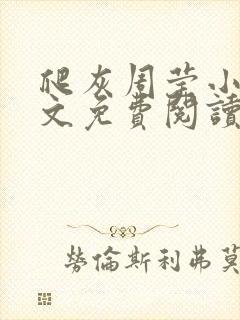 爬灰周莹小
文免費閱讀
勞倫斯利弗莫